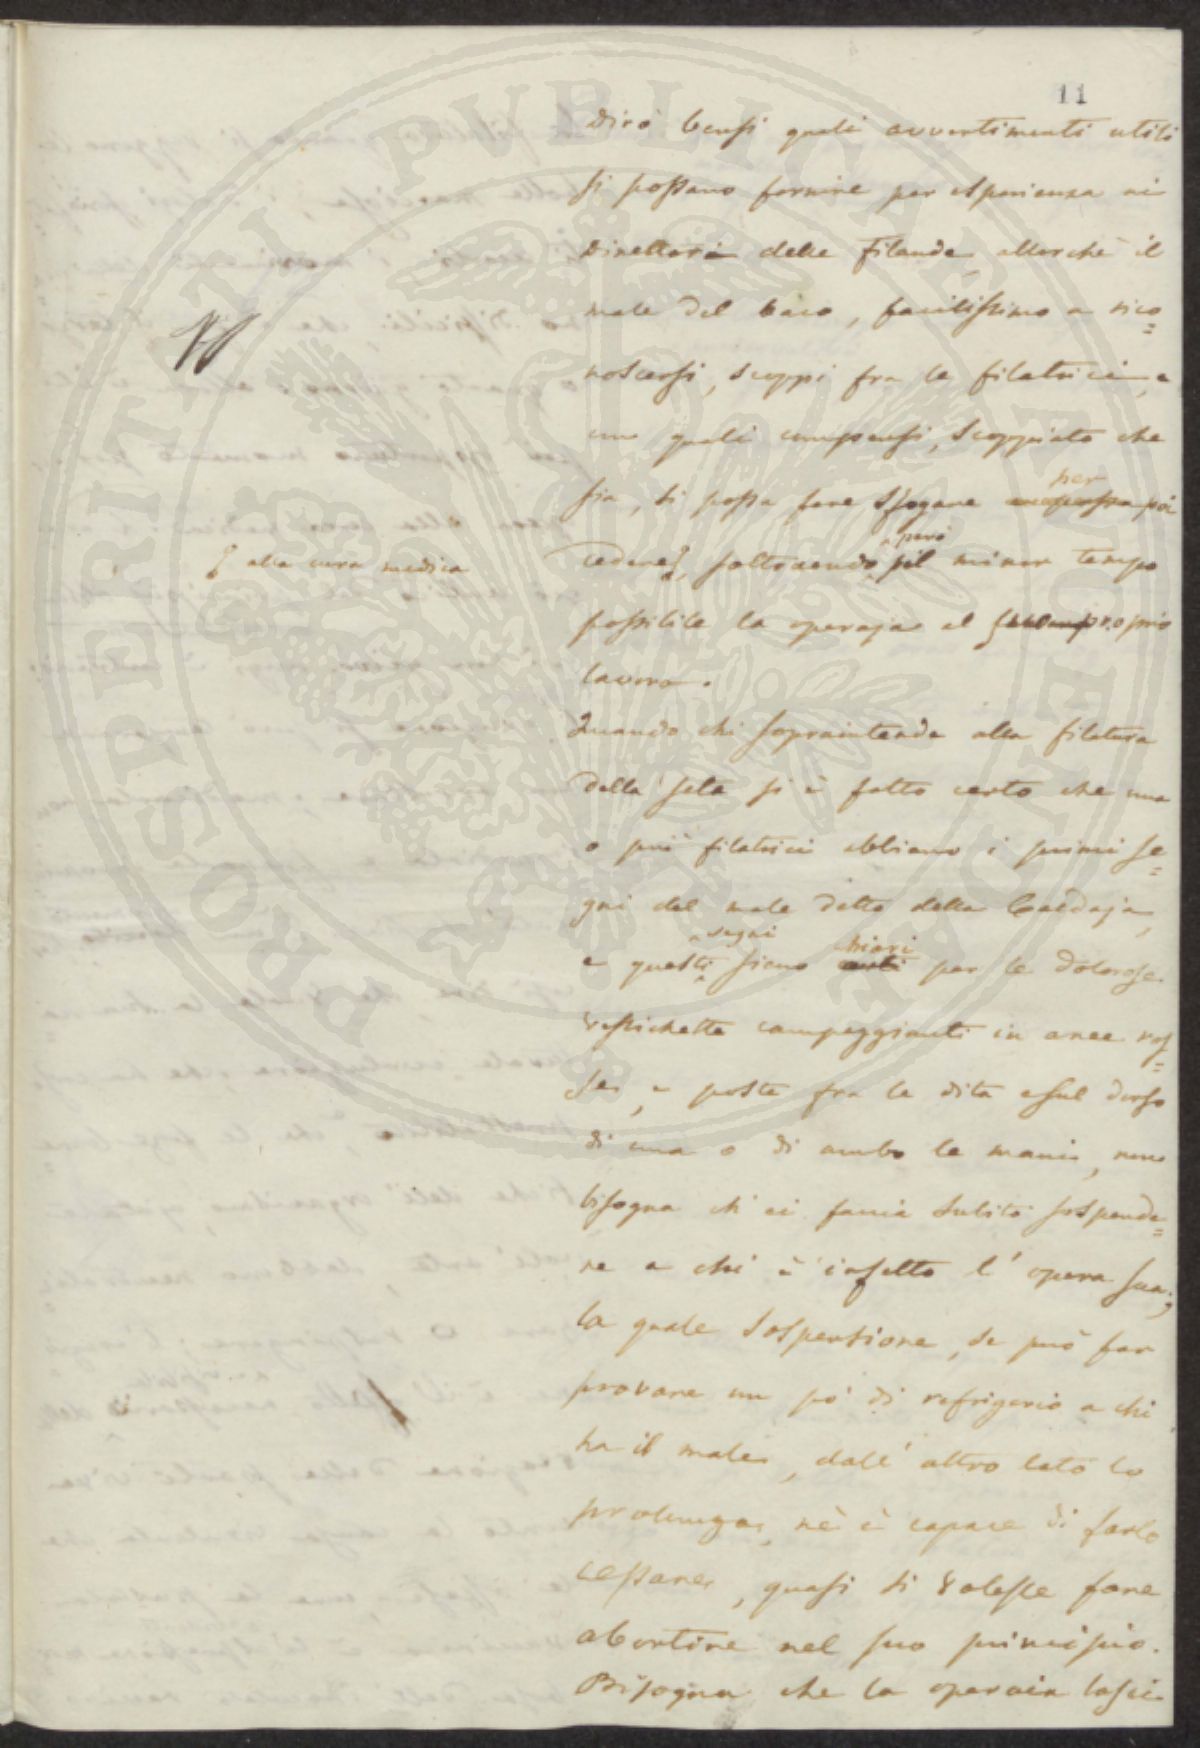 11
Dirò bensì quali avvertimenti utili
si possano fornire per esperienza ai
Direttori delle Filande, allorchè il
male del baco, facilissimo a rico=
noscersi, scoppi fra le filatrici, e
con quali compensi, scoppiato che
sia, si possa fare sfogare per poi
cedere, sottraendo però pel minor tempo
alla cura medica
possibile la operaja al proprio
lavoro.
Quando chi sopraintende alla filatura
della seta si è fatto certo che una
o più filatrici abbiano i primi se=
gni del male detto della Caldaja,
e questi segni sieno chiari per le dolorose
vessichette campeggianti in aree ros=
se, e poste fra le dita e sul dorso
di una o di ambo le mani, non
bisogna ch'ei faccia subito sospende=
re a chi è infetto l'opera sua;
la quale sospensione, se può far
provare un pò di refrigerio a chi
ha il male, dall'altro lato lo
prolunga, nè è capace di farlo
cessare, quasi si volesse fare
abortire nel suo principio.
Bisogna che la operaia lasci
PROSPERITATI PVBLICAE AVGENDAE